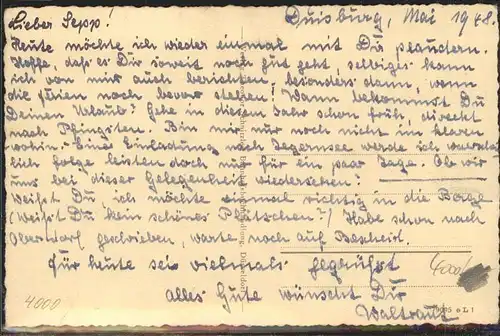 Lieber Sepp!
Duisburg, Mai 1948.
Heute möchte ich wieder einmal mit Dir plaudern.
Hoffe, daß es Dir soweit noch gut geht, selbiges kann
ich von mir auch berichten, besonders dann, wenn
die Ferien noch bevor stehen! Wann bekommst Du
Deinen Urlaub? Gehe in diesem Jahr schon früh, direkt
nach Pfingsten. Bin mir nur noch nicht im klaren
wohin. Eine Einladung nach Tegernsee werde ich
lich folge leisten doch nur für ein paar Tage. Ob wir
uns bei dieser Gelegenheit wiedersehen?
Weißt Du, ich möchte einmal richtig in die Berge
(Weißt Du kein schönes Plätzchen?) Habe schon nach
Oberstdorf geschrieben, warte noch auf Bescheid.
Für heute sei vielmals gegrüßt
Alles Gute wünscht Dir
Waltraud
4000
4000